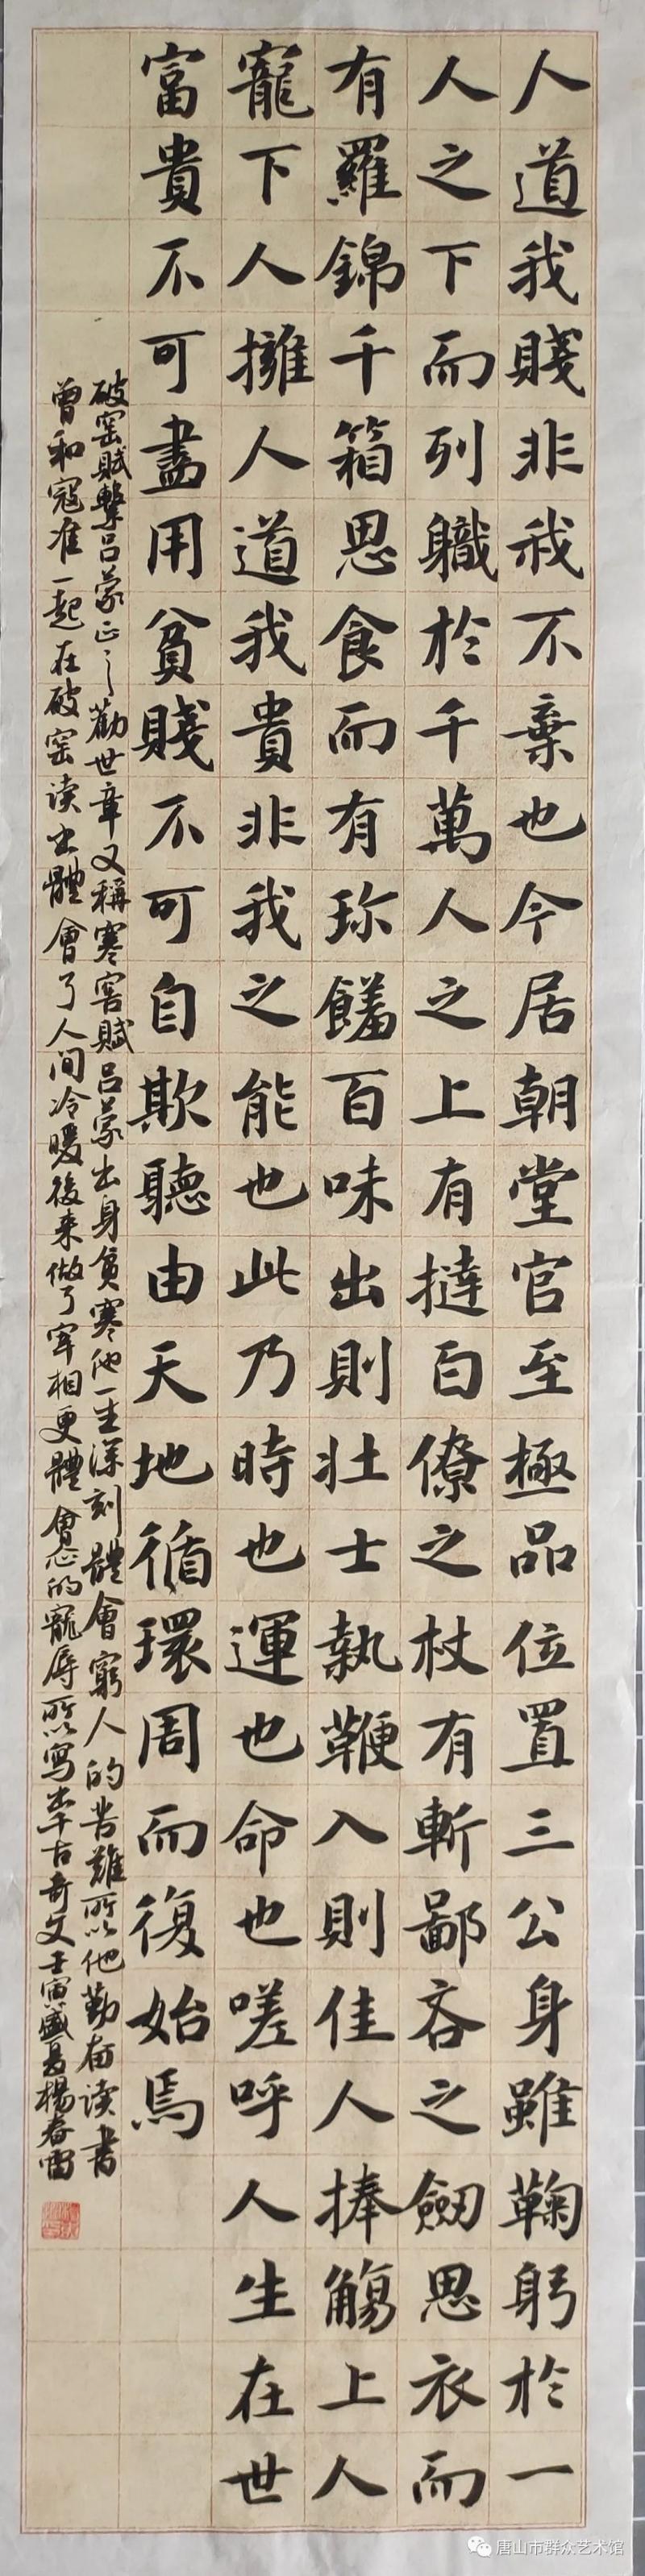 人道我賤非我不棄也今居朝堂官至極品位置三公身雖鞠躬於一
人之下而列職於千萬人之上有撻百僚之杖有斬鄙吝之劒思衣而
有羅錦千箱思食而有珎饈百味出則壯士執鞭入則佳人捧觴上人
寵下人擁人道我貴非我之能也此乃時也運也命也嗟呼人生在世
富貴不可盡用貧賤不可自欺聽由天地循環周而復始焉
破窑賦繫吕蒙正之勸世章又稱寒窖賦吕蒙出身貧寒他一生深刻體會窮人的苦難所以他勤奋读書
曾和寇准一起在破窑读出體會了人间冷暖後来做了宰相更體會心的寵辱所以寫本千古奇文壬寅盛夏楊春雷
唐山市群众艺术馆